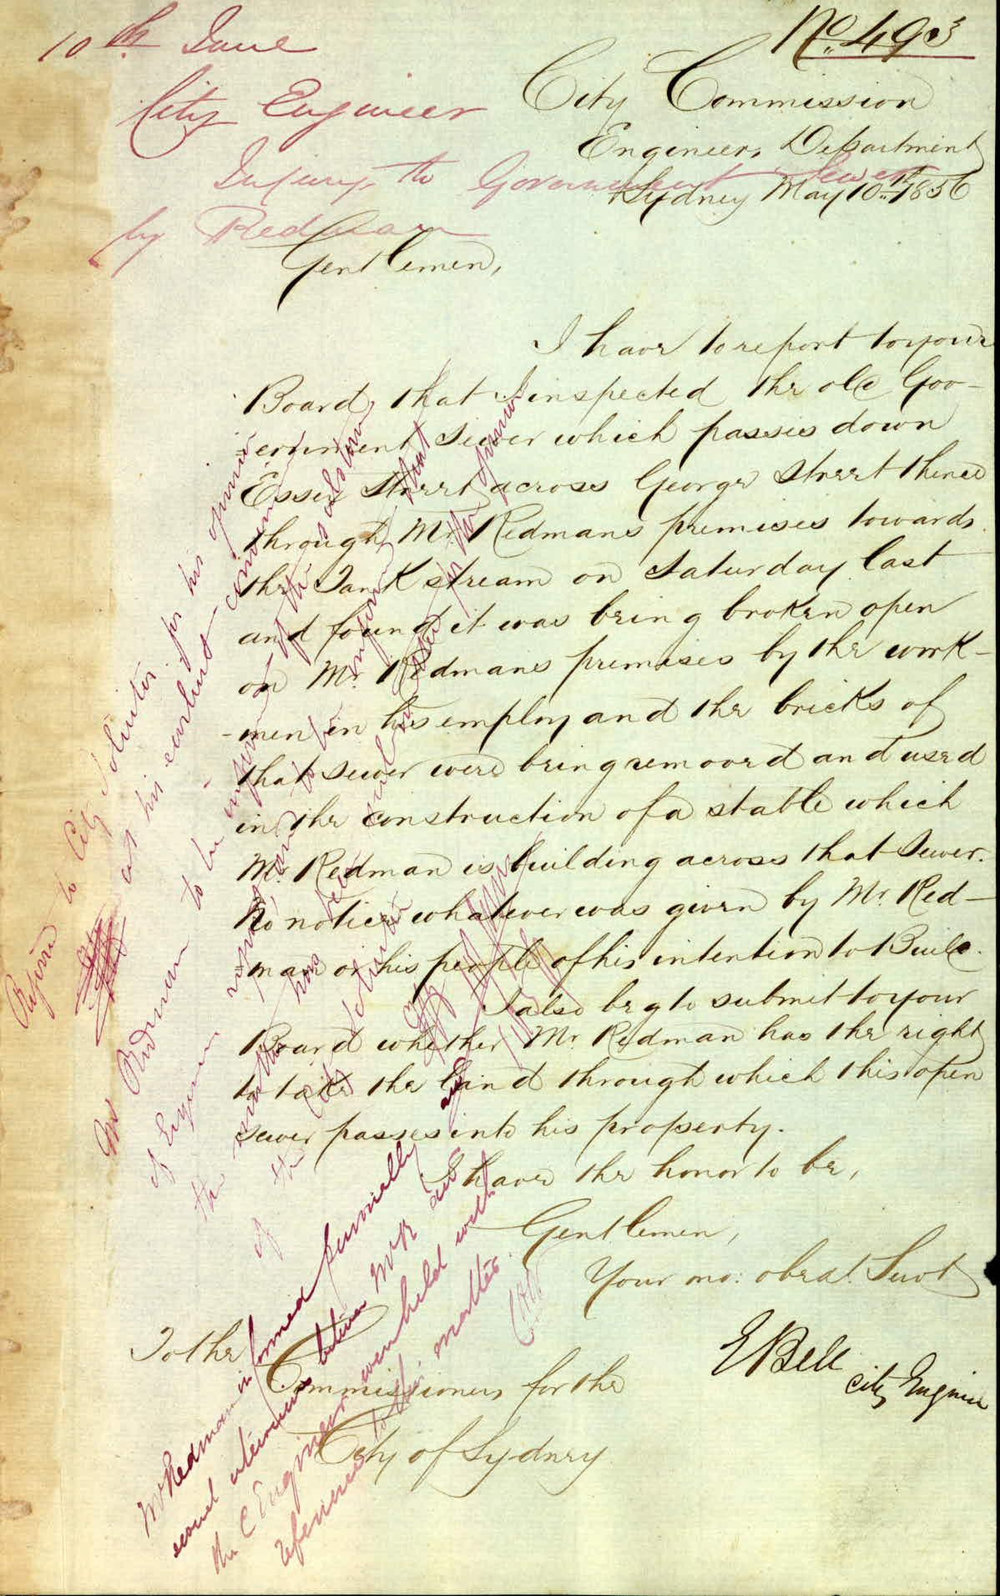 No. 493
10th June
City Engineer
Injury to Government Sewer
by Redman
City Commission
Engineers Department
Sydney May 10th 1856
Gentlemen,
I have to report to your
Board, that I inspected the old Gov-
-ernment Sewer which passes down
Essex Street across George Street thence
through Mr. Redmans premises towards
the Tank stream on Saturday last
and found it was being broken open
on Mr. Redmans premises by the work-
-men in his employ and the bricks of
that sewer were being removed and used
in the construction of a stable which
Mr. Redman is building across that Sewer.
No notice whatever was given by Mr. Red-
-man or his people of his intention to Build.
I also beg to submit to your
Board whether Mr. Redman has the right
to take the Land through which this open
sewer passes into his property.
I have the honor to be,
Gentlemen,
Your mo: obedt. Servt
E Bell
City Engineer
To the
Commissioners for the
City of Sydney
Refered to City Solicitor for his opinion
at his earliest
Mr Redman to be informed
of the
Mr Redman informed personally
several interviews between Mr R and
the C Engineer were held with
reference to this matter.